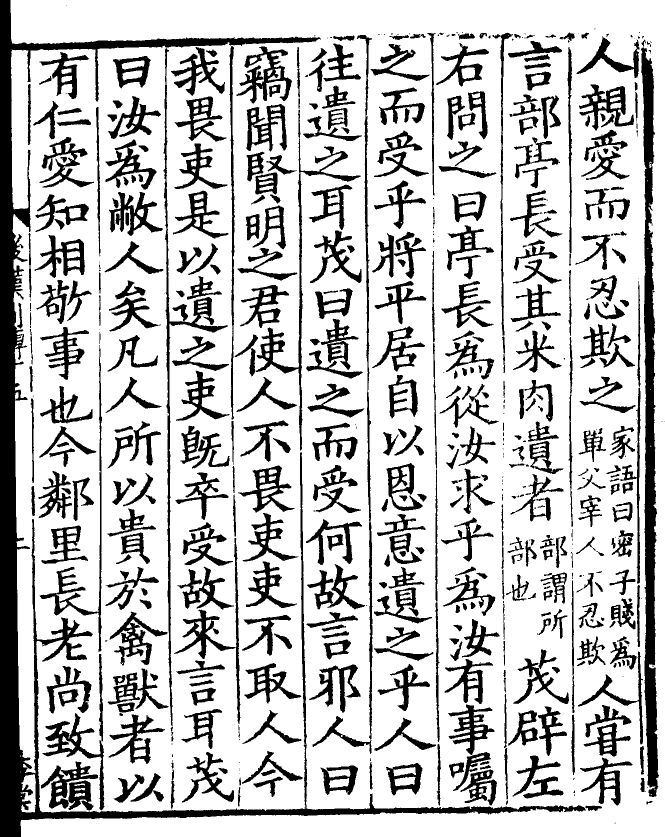 人親愛而不忍欺之家語曰宓子賤爲單父宰人不忍欺人甞有
言部亭長受其米肉遺者部謂所部也茂辟左
右問之曰亭長爲從汝求乎爲汝有事囑
之而受乎將平居自以恩意遺之乎人曰
往遺之耳茂曰遺之而受何故言邪人曰
竊聞賢明之君使人不畏吏吏不取人今
我畏吏是以遺之吏旣卒受故來言耳茂
曰汝爲敝人矣凡人所以貴於禽獸者以
有仁愛知相敬事也今鄰里長老尚致饋
後漢列傳十五